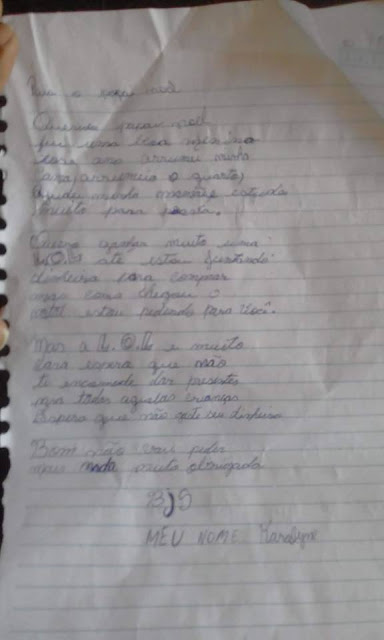 Para o papai noel
Querido papai noel
fui uma boa menina
esse ano arrumei minha
cama, arrumei o quarto,
ajudei minha mamãe, estudei
muito para prova.
Queria ganhar muito uma
L.O.L até estou juntando
dinheiro para comprar
mas como chegou o
natal estou pedindo para você.
Mas a L.O.L e muito
cara espero que não
te encomende dar presentes
pra todas aquelas crianças
Espero que não gaste seu dinheiro
Bom não vou pedir
mais nada muito obrigada
BJS
MEU NOME Karolyne